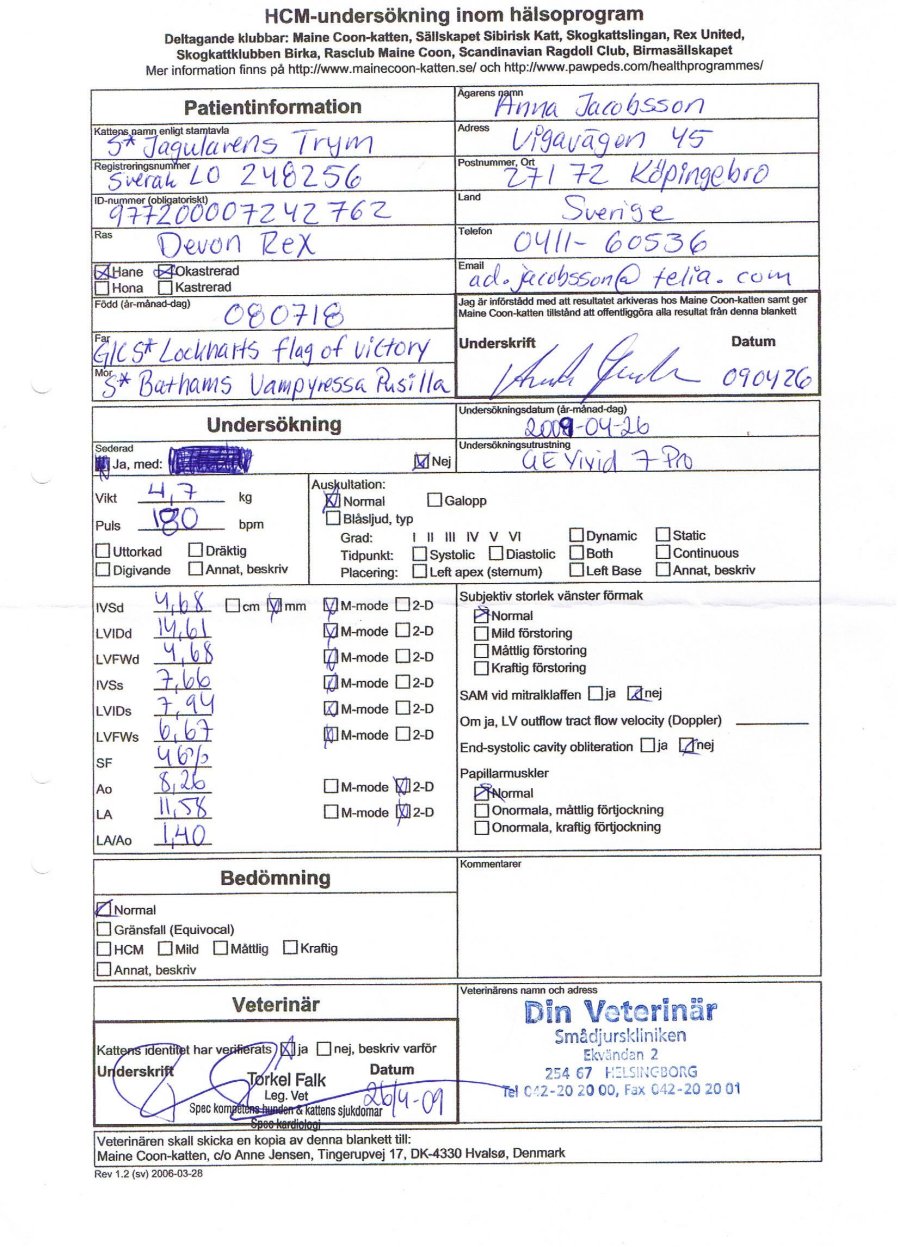 HCM-undersökning inom hälsoprogram
Deltagande klubbar: Maine Coon-katten, Sällskapet Sibirisk Katt, Skogkattslingan, Rex United,
Skogkattklubben Birka, Rasclub Maine Coon, Scandinavian Ragdoll Club, Birmasällskapet
Mer information finns på http://www.mainecoon-katten.se/ och http://www.pawpeds.com/healthprogrammes/
Patientinformation
Kattens namn enligt stamtavla
S* Jagularens Trym
Registreringsnummer
Sverak LO 248256
ID-nummer (obligatoriskt)
977200007242762
Ras
Devon Rex
Hane Okastrerad
Hona Kastrerad
Född (år-månad-dag)
080718
Far
GIC S* Lockharts flag of victory
Mor
S* Bathams Vampyressa Pusilla
Ägarens namn
Anna Jacobsson
Adress
Vigavägen 45
Postnummer, Ort
271 72 Köpingebro
Land
Sverige
Telefon
0411-60536
Email
ad.jacobsson@telia.com
Jag är införstådd med att resultatet arkiveras hos Maine Coon-katten samt ger
Maine Coon-katten tillstånd att offentliggöra alla resultat från denna blankett
Underskrift Datum
090426
Undersökning
Sederad
Ja, med: Nej
Undersökningsdatum (år-månad-dag)
2009-04-26
Undersökningsutrustning
GE Vivid 7 Pro
Vikt 4,7 kg
Puls 180 bpm
Uttorkad Dräktig
Digivande Annat, beskriv
Auskultation:
Normal Galopp
Blåsljud, typ
Grad: I II III IV V VI Dynamic Static
Tidpunkt: Systolic Diastolic Both Continuous
Placering: Left apex (sternum) Left Base Annat, beskriv
IVSd 4,68 cm mm M-mode 2-D
LVIDd 14,61 M-mode 2-D
LVFWd 4,68 M-mode 2-D
IVSs 7,66 M-mode 2-D
LVIDs 7,94 M-mode 2-D
LVFWs 6,67 M-mode 2-D
SF 46%
Ao 8,26 M-mode 2-D
LA 11,58 M-mode 2-D
LA/Ao 1,40
Subjektiv storlek vänster förmak
Normal
Mild förstoring
Måttlig förstoring
Kraftig förstoring
SAM vid mitralklaffen ja nej
Om ja, LV outflow tract flow velocity (Doppler)
End-systolic cavity obliteration ja nej
Papillarmuskler
Normal
Onormala, måttlig förtjockning
Onormala, kraftig förtjockning
Bedömning
Normal
Gränsfall (Equivocal)
HCM Mild Måttlig Kraftig
Annat, beskriv
Kommentarer
Veterinär
Kattens identitet har verifierats ja nej, beskriv varför
Underskrift Datum
Torkel Falk
Leg. Vet
Spec kompetens hunden & kattens sjukdomar
Spec kardiologi
26/4-09
Veterinärens namn och adress
Din Veterinär
Smådjurskliniken
Ekvändan 2
254 67 HELSINGBORG
Tel 042-20 20 00, Fax 042-20 20 01
Veterinären skall skicka en kopia av denna blankett till:
Maine Coon-katten, c/o Anne Jensen, Tingerupvej 17, DK-4330 Hvalsø, Denmark
Rev 1.2 (sv) 2006-03-28